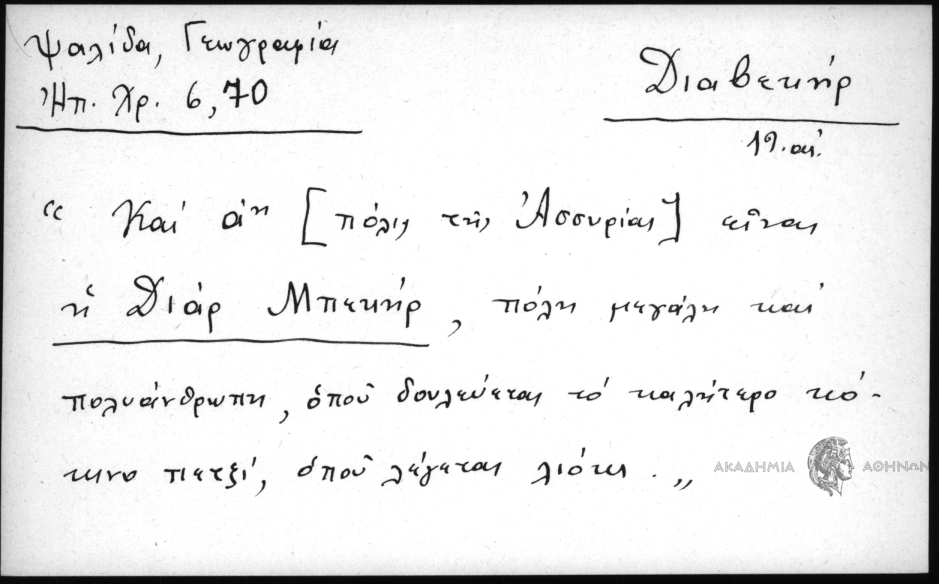 Ψαλίδα, Γεωγραφία
Ἠπ. Χρ. 6,70
Διαβεκήρ
19. αἰ.
“ Καί ἄη [πόλις τῆς Ἀσσυρίας] εἶναι
ἡ Διάρ Μπεκήρ, πόλη μεγάλη καί
πολυάνθρωπη, ὁποῦ δουλεύεται τό καλήτερο κό-
κινο πετζί, ὁποῦ λέγεται
ΑΚΑΔΗΜΙΑ ΑΘΗΝΩΝ